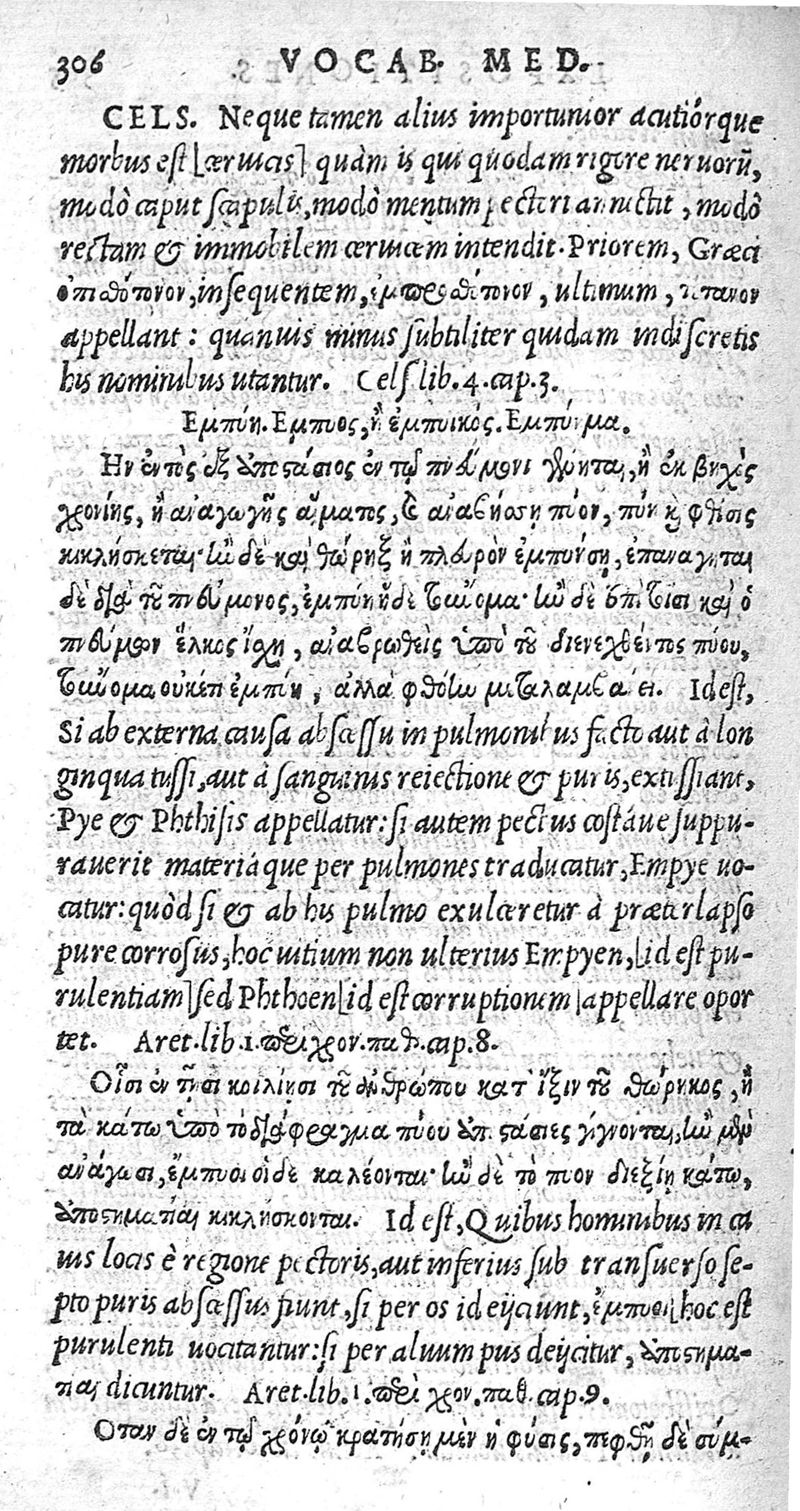 306 VOCAB. MED.
CELS. Neque tamen alius importunior acutiórque
morbus est [ceruicis] quàm is qui quodam rigore neruorũ,
modò caput scapulis, modò mentum pectori annectit, modò
rectam & immobilem ceruicem intendit. Priorem, Græci
ὀπισθότονον, insequentem, ἐμπροσθότονον, ultimum, τέτανον
appellant: quanuis minus subtiliter quidam indiscretis
his nominibus utantur. Cels. lib. 4. cap. 3.
Εμπύη. Εμπυος, ἢ ἐμπυικός. Εμπύημα.
Ην ἐντὸς ἐξ ἀποστάσιος ἐν τῷ πνεύμονι γένηται, ἢ ἐκ βηχὸς
χρονίης, ἢ ἀναγωγῆς αἵματος, & ἀναβήσσῃ πύον, πύη καὶ φθίσις
κικλήσκεται· ἢν δὲ καὶ θώρηξ ἢ πλευρὸν ἐμπυήσῃ, ἐπανάγηται
δὲ διὰ τοῦ πνεύμονος, ἐμπύη ἥδε τοὔνομα· ἢν δὲ ἐπὶ τῇσι καὶ ὁ
πνεύμων ἕλκος ἴσχῃ, ἀναβρωθεὶς ὑπὸ τοῦ διενεχθέντος πύου,
τοὔνομα οὐκέτι ἐμπύη, ἀλλὰ φθόην μεταλαμβάνει. Id est,
Si ab externa causa abscessu in pulmonibus facto aut à lon
ginqua tussi, aut à sanguinis reiectione & puris, extussiant,
Pye & Phthisis appellatur: si autem pectus costáue suppu-
rauerit materiáque per pulmones traducatur, Empye uo-
catur: quòd si & ab his pulmo exulceretur à præterlapso
pure corrosus, hoc uitium non ulterius Empyen, [id est pu-
rulentiam] sed Phthoen [id est corruptionem] appellare opor
tet. Aret. lib. 1. περὶ χρον. παθ. cap. 8.
Οἷσι ἐν τῇσι κοιλίῃσι τοῦ ἀνθρώπου κατ' ἴξιν τοῦ θώρηκος, ἢ
τὰ κάτω ὑπὸ τὸ διάφραγμα πύου ἀποστάσιες γίγνονται, ἢν μὲν
ἀνάγωσι, ἔμπυοι οἵδε καλέονται· ἢν δὲ τὸ πυον διεξίῃ κάτω,
ἀποστηματίαι κικλήσκονται. Id est, Quibus hominibus in ca
uis locis è regione pectoris, aut inferius sub transuerso se-
pto puris abscessus fiunt, si per os id eijciunt, ἔμπυοι [hoc est
purulenti uocitantur: si per aluum pus deijcitur, ἀποστημα-
τίαι dicuntur. Aret. lib. 1. περὶ χρον. παθ. cap. 9.
Οταν δὲ ἐν τῷ χρόνῳ κρατήσῃ μὲν ἡ φύσις, πεφθῇ δὲ σύμ-